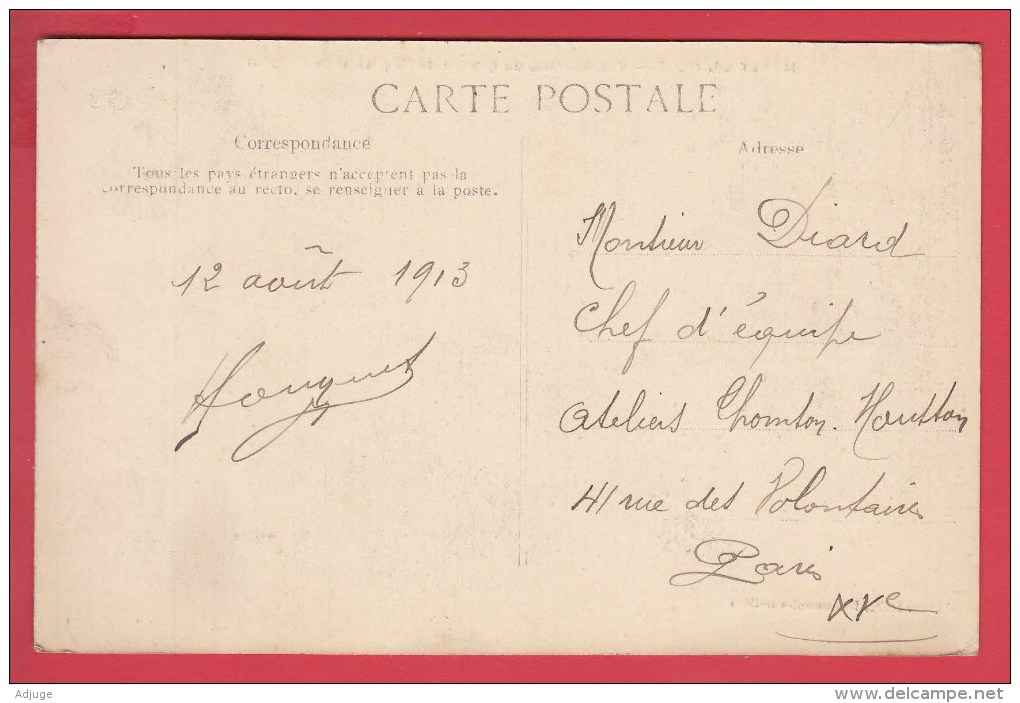 CARTE POSTALE
Correspondance
Tous les pays étrangers n'acceptent pas la
correspondance au recto, se renseigner à la poste.
12 août 1913
Adresse
Monsieur Diard
Chef d'équipe
Ateliers Thomson. Houston
41 rue des Volontaires
Paris
XVe
Adjuge
www.delcampe.net